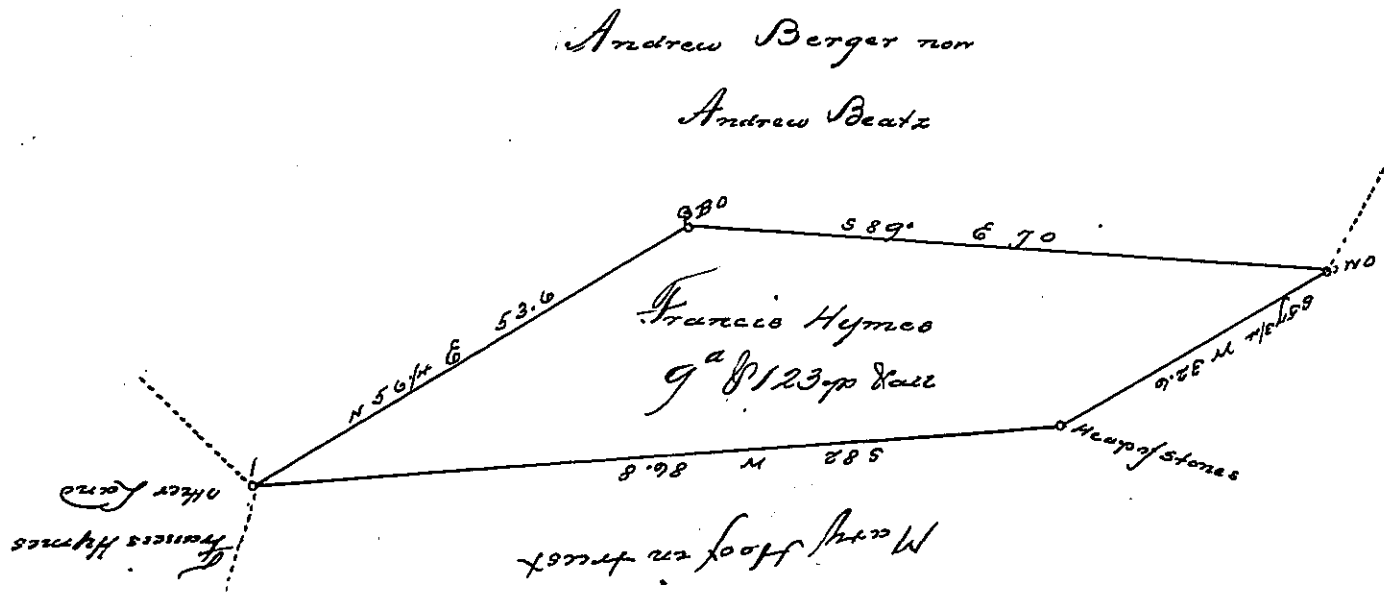 Andrew Berger now
Andrew Beatz
BO
S 89° E 70
WO
N 56 1/4 E 53.6
Francis Hymes
9a & 123 p & all
S 57 3/4 W 32.6
Heap of stones
S 82 W 86.8
Francis Hymes
other Land
Mary Hoof in trust